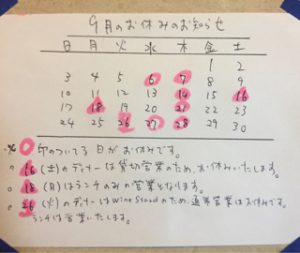 9月のお休みのお知らせ
日 月 火 水 木 金 土
1 2
3 4 5 6 7 8 9
10 11 12 13 14 15 16
17 18 19 20 21 22 23
24 25 26 27 28 29 30
※ ○ 印のついてる日がお休みです。
○ 16 (土)のディナーは貸切営業のため、お休みいたします。
○ 18 (月)はランチのみの営業となります。
○ 26 (火)のディナーはwine standのため、通常営業はお休みです。
ランチは営業いたします。